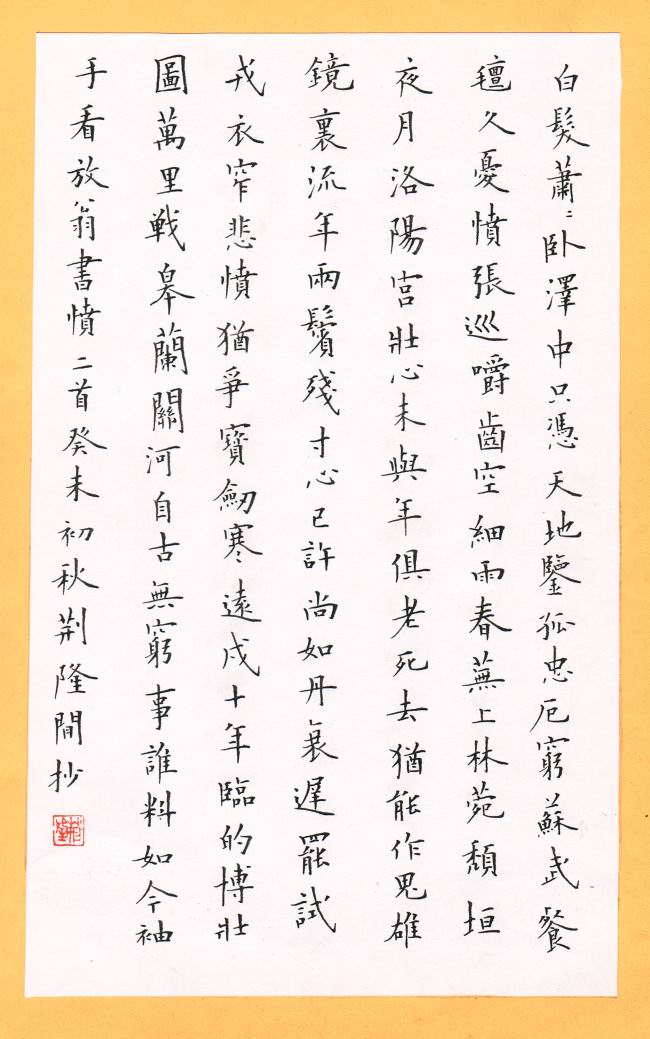 白髮蕭〻卧澤中只憑天地鑒孤忠厄窮蘇武餐
氊久憂憤張巡嚼齒空細雨春蕪上林菀頽垣
夜月洛陽宮壯心未與年俱老死去猶能作鬼雄
鏡裏流年兩鬢殘寸心已許尚如丹衰遲罷試
戎衣窄悲憤猶爭寶劒寒遠戍十年臨的博壯
圖萬里戦皋蘭關河自古無窮事誰料如今袖
手看放翁書憤二首癸未初秋荊隆間抄